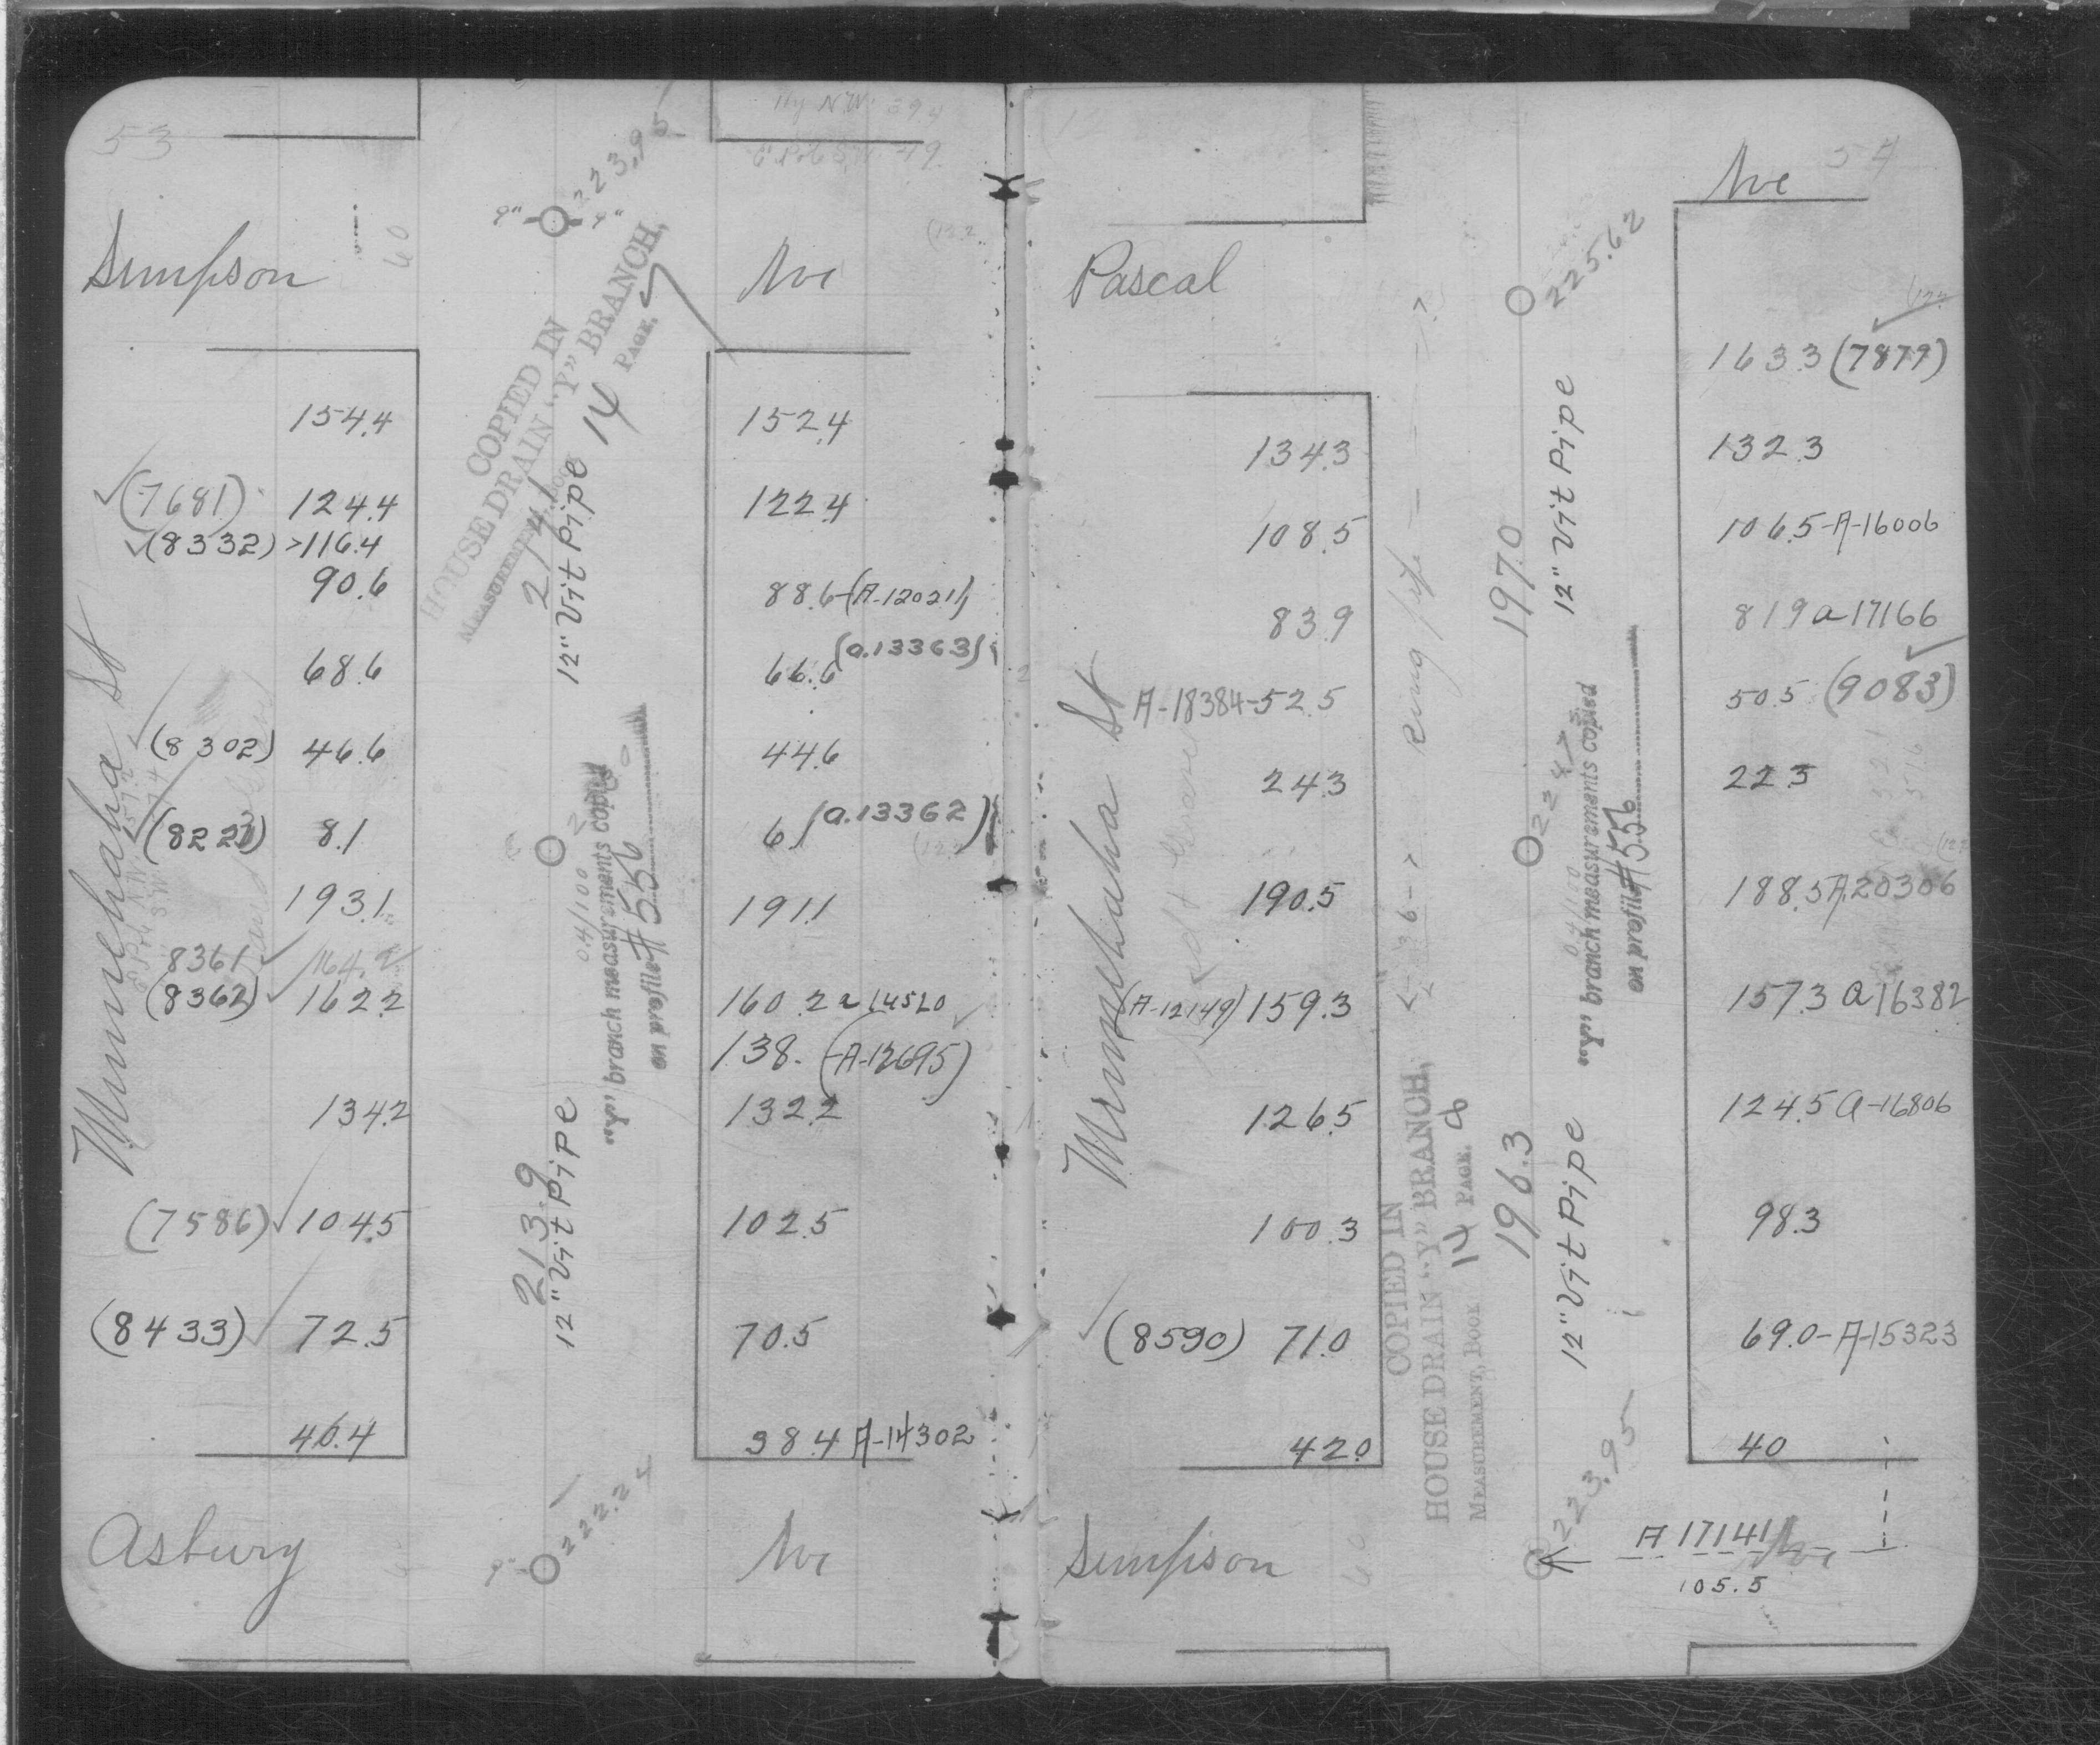 53
Simpson
Ave
60
223.95
9"
COPIED IN
HOUSE DRAIN "Y" BRANCH,
MEASUREMENT, BOOK 14 PAGE. 7
154.4
152.4
(7681) 124.4
122.4
(8332) >116.4
90.6
88.6-(A-12021)
68.6
66.6 (a.13363)
(8302) 46.6
44.6
8.1
6.1 (a.13362)
Minnehaha St
214.1
12" Vit Pipe
0.4/100
"Y" branch measurements copied
on profile #556
193.1
191.1
8361 164.2
(8362) 162.2
160.2 a 14520
138. (-A-12695)
134.2
132.2
(7586) 104.5
102.5
213.9
12" Vit Pipe
(8433) 72.5
70.5
40.4
38.4 A-14302
Asbury
Ave
222.24
54
Ave
Pascal
225.62
163.3 (7879)
134.3
132.3
108.5
106.5-A-16006
83.9
81.9 a 17166
A-18384-52.5
50.5 (9083)
24.3
22.3
Minnehaha St
197.0
12" Vit Pipe
0.4/100
"Y" branch measurements copied
on profile #556
190.5
188.5 A.20306
(A-12149) 159.3
157.3 a 16382
126.5
124.5 a-16806
100.3
98.3
196.3
12" Vit Pipe
(8590) 71.0
69.0-A-15323
42.0
40
COPIED IN
HOUSE DRAIN "Y" BRANCH,
MEASUREMENT, BOOK 14 PAGE. 8
Simpson
60
223.95
A 17141
Ave
105.5